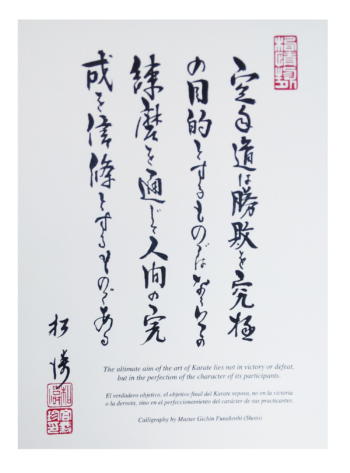 空手道は勝敗を究極
の目的とするものではなくその
練磨を通じて人間の完
成を信條とするものである
松濤
The ultimate aim of the art of Karate lies not in victory or defeat,
but in the perfection of the character of its participants.
El verdadero objetivo, el objetivo final del Karate reposa, no en la victoria
o la derrota, sino en el perfeccionamiento del carácter de sus practicantes.
Calligraphy by Master Gichin Funakoshi (Shoto)